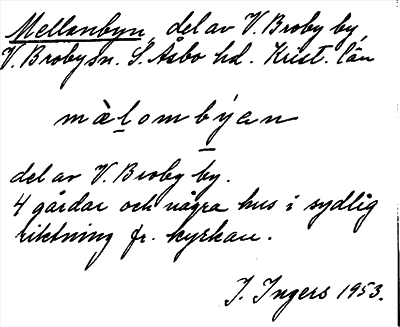 Mellanbyn, del av V. Broby by,
V. Broby sn. S. Åsbo hd. Krist. län
màlombýen
del av V. Broby by.
4 gårdar och några hus i sydlig
riktning fr. kyrkan.
I. Ingers 1953.